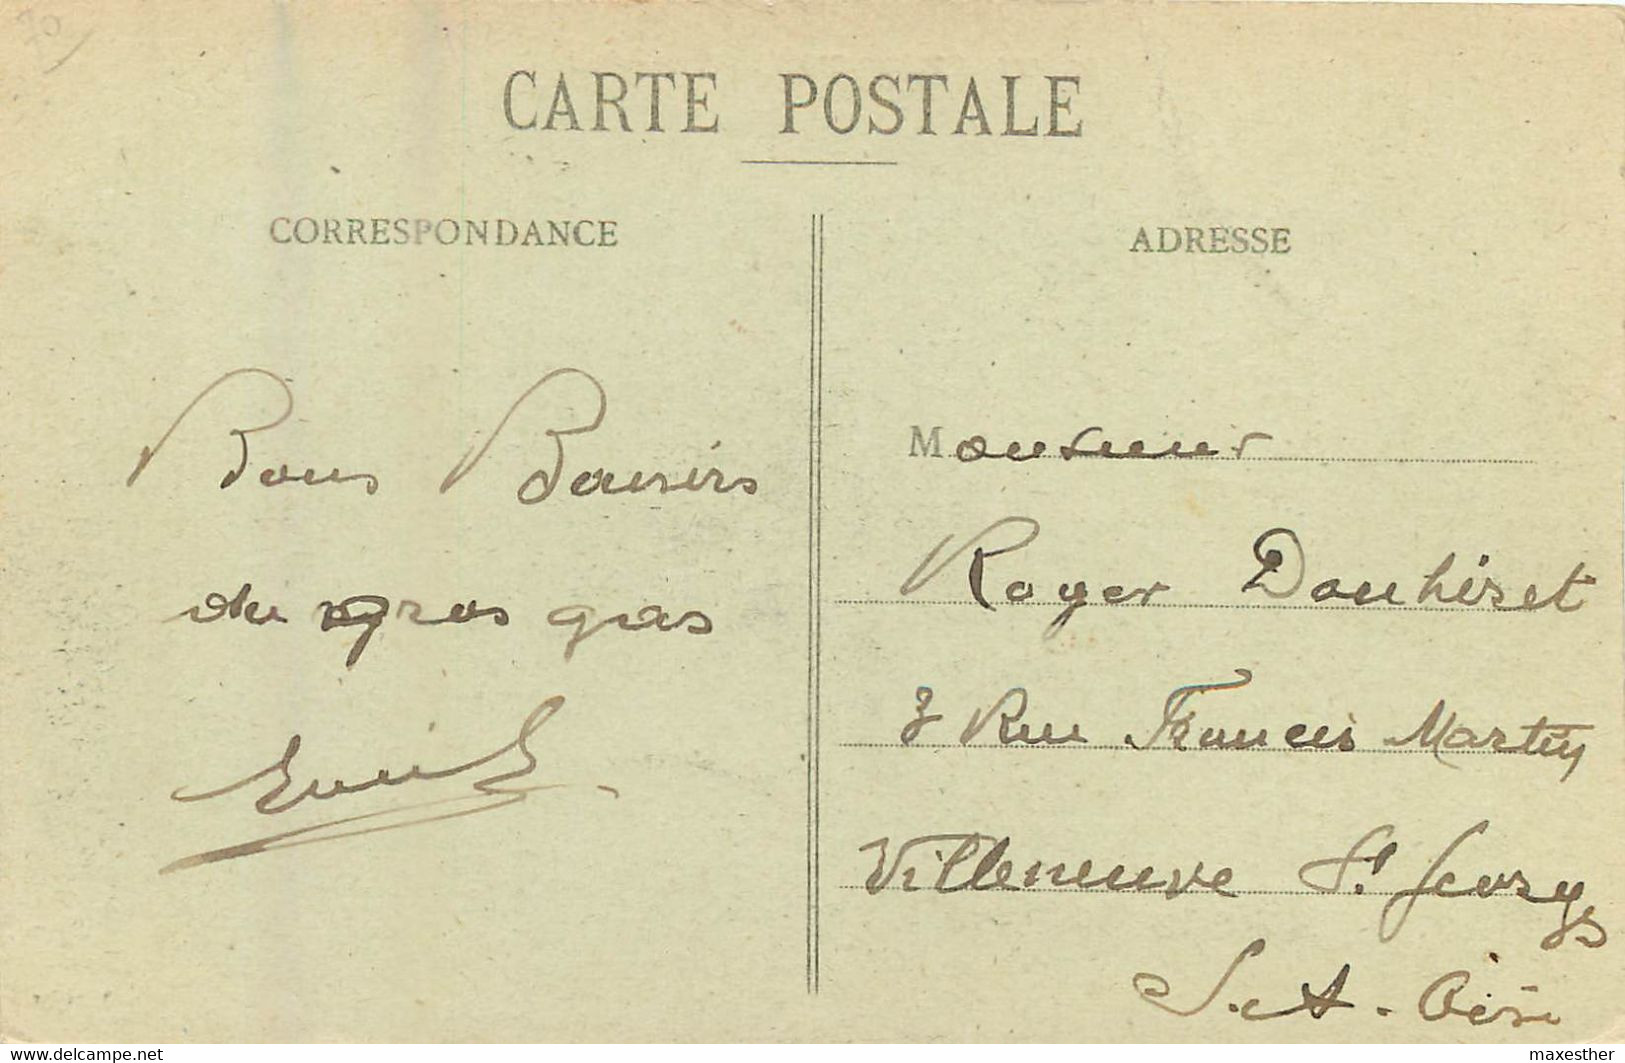 70
CARTE POSTALE
CORRESPONDANCE
Bons Baisers
du gros gas
Emile
ADRESSE
Monsieur
Roger Douhiset
3 Rue Francis Martin
Villeneuve St Georges
S. et. Oise
www.delcampe.net
maxesther